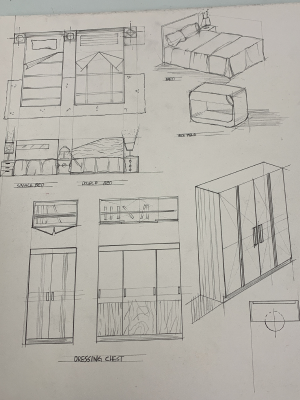 BED
SIDE TABLE
SINGLE BED
DOUBLE BED
DRESSING CHEST